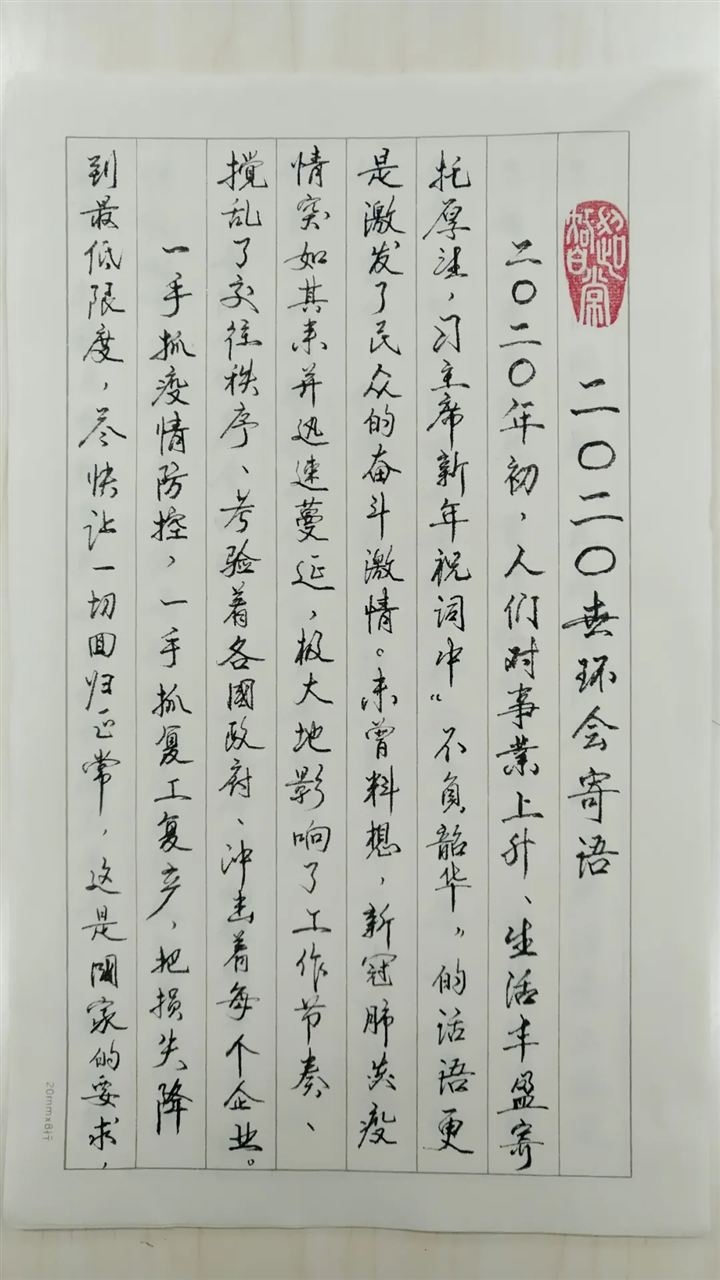 二〇二〇表环会寄语
二〇二〇年初，人们对事業上升、生活丰盈寄
托厚望，习主席新年祝词中“不负韶华”的话语更
是激发了民众的奋斗激情。未曾料想，新冠肺炎疫
情突如其来并迅速蔓延，极大地影响了工作节奏、
搅乱了交往秩序、考验着各國政府、冲击着每个企业。
一手抓疫情防控，一手抓复工复产，把损失降
到最低限度，尽快让一切回归正常，这是國家的要求，
20mmx8行